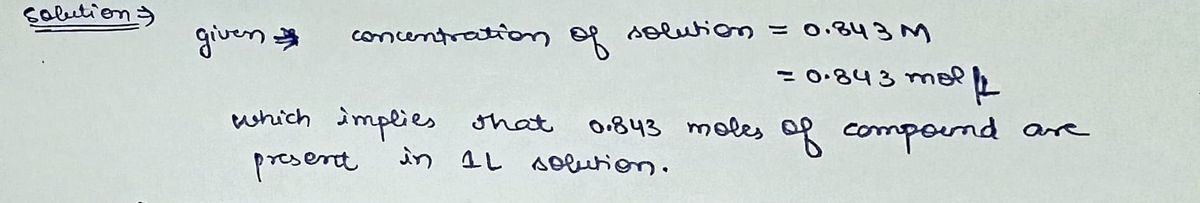 Solution ⇒
given ⇒ concentration of solution = 0.843 M
= 0.843 mol/L
which implies that 0.843 moles of compound are
present in 1L solution.